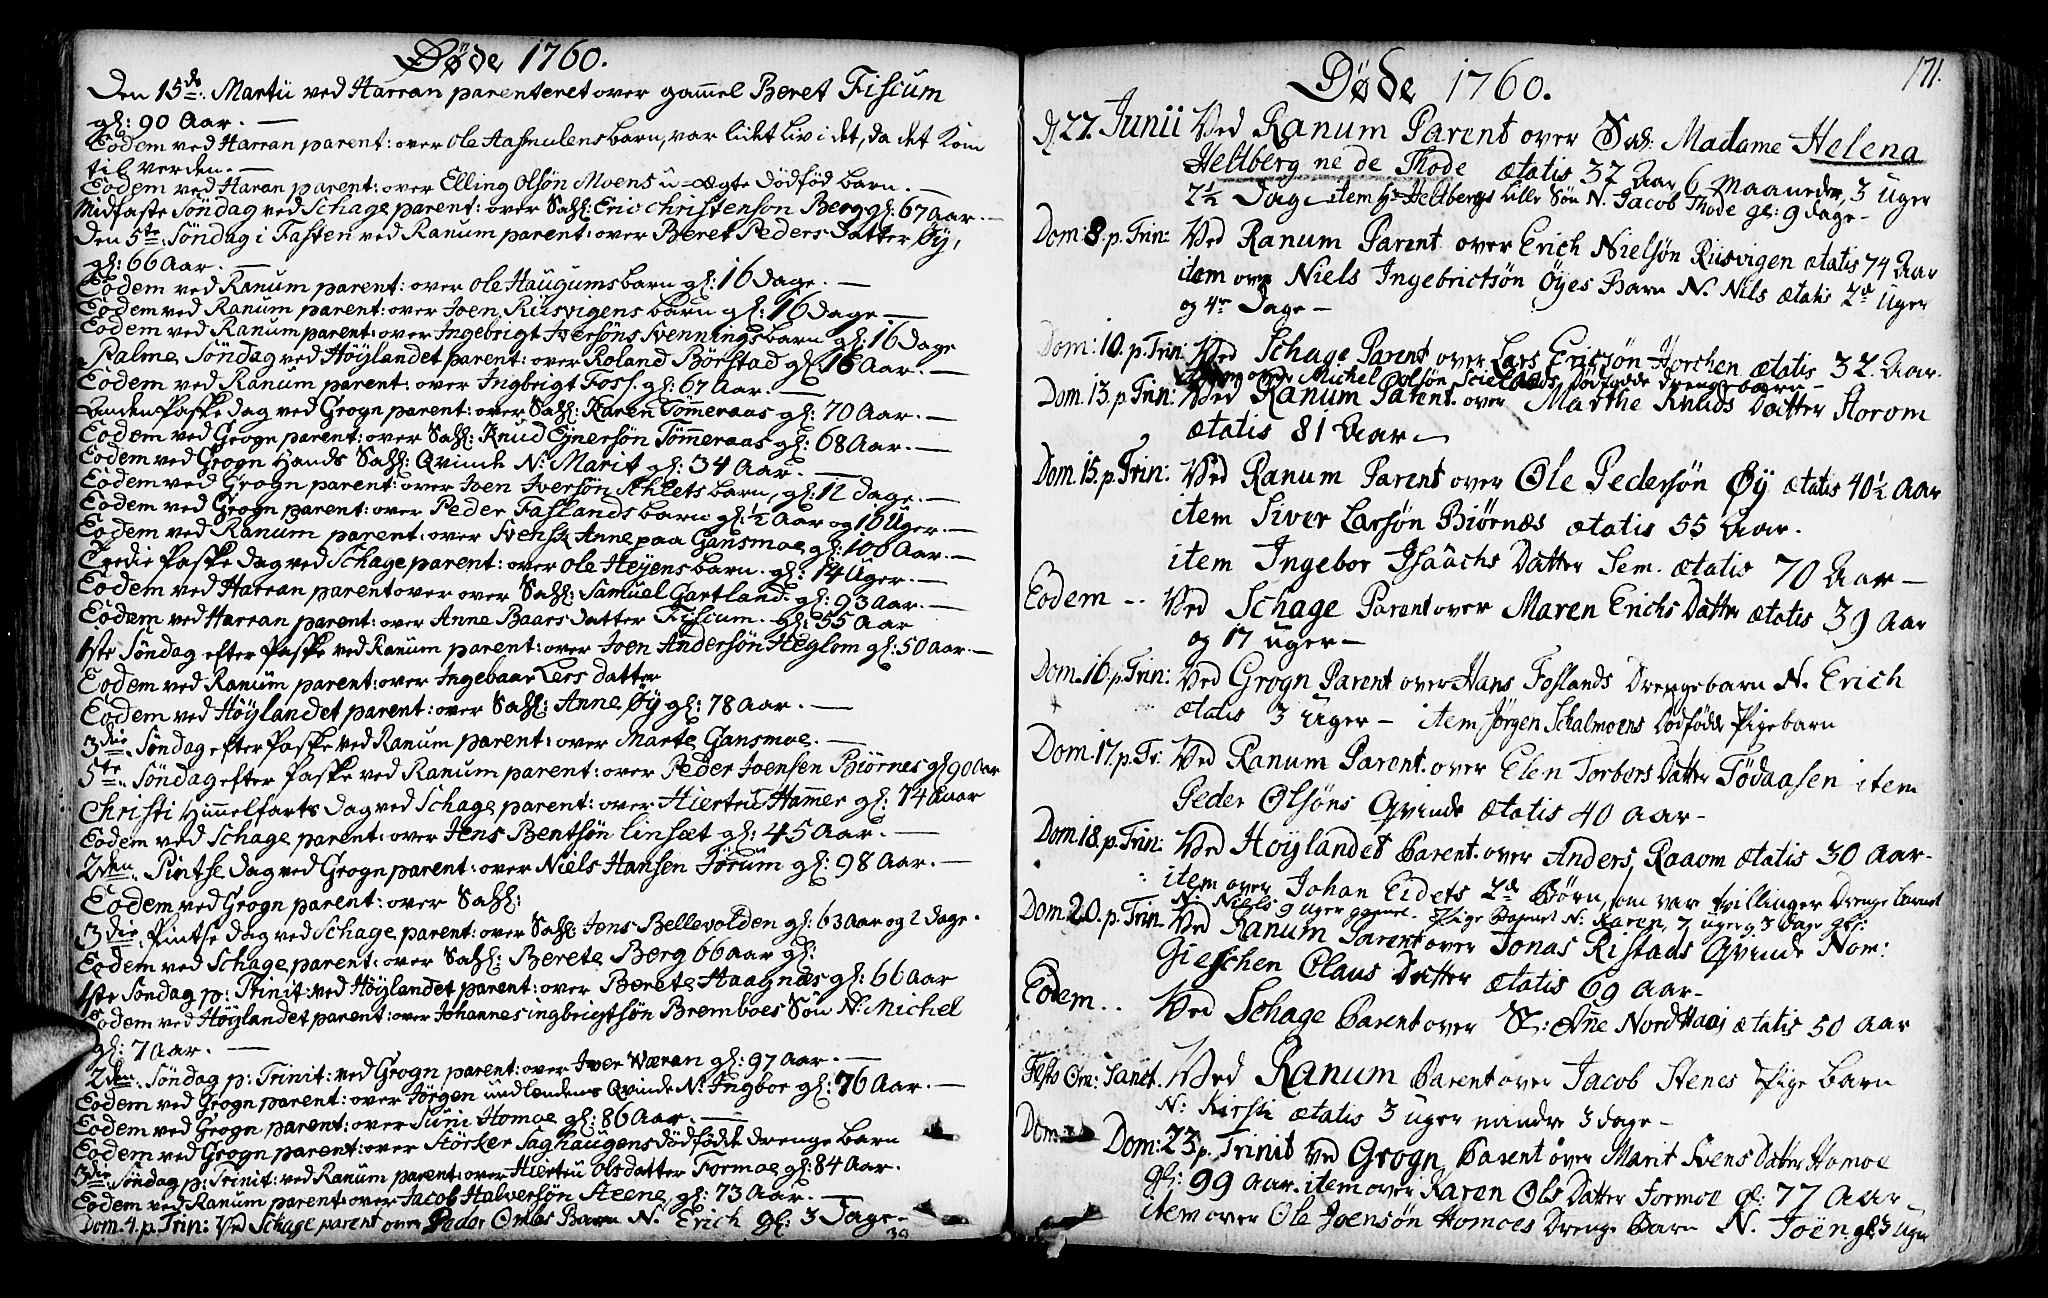 Døde 1760.
Den 15de Martii ved Harran parenteret over gammel Beret Fiscum
gl: 90 Aar. —
Eodem ved Harran parent: over Ole Aasmulens barn, var lidet liv i det, da det kom
til verden. —
Eodem ved Haran parent: over Elling Olsøn Moens u=ægte dødfød barn. —
Midfaste Søndag ved Schage parent: over Sahl: Eric Christenson Berg gl: 67 Aar. —
Den 5te Søndag i Fasten ved Ranum parent: over Beret Peders Datter Øy,
gl: 66 Aar. —
Eodem ved Ranum parent: over Ole Haugums barn gl: 16 Dage. —
Eodem ved Ranum parent: over Joen Rusvigens barn gl: 16 Dage —
Eodem ved Ranum parent: over Ingebrigt Iversøns Svennings barn gl: 16 Dage
Palme Søndag ved Høylandet parent: over Roland Børstad gl: 16 Aar. —
Eodem ved Ranum parent: over Ingbrigt Foss. gl: 67 Aar. —
Anden Paske Dag ved Grogn parent: over Sahl: Karen Tømmeraas gl: 70 Aar. —
Eodem ved Grogn parent: over Sahl: Knud Ejnersøn Tømmeraas gl: 68 Aar. —
Eodem ved Grogn Hands Sahl: Qvinde N: Marit gl: 34 Aar. —
Eodem ved Grogn parent: over Joen Iversøn Schlets barn, gl: 12 Dage. —
Eodem ved Grogn parent: over Peder Faslands barn gl: ½ Aar og 16 Uger. —
Eodem ved Ranum parent: over Svensk Anne paa Gansmoe gl: 100 Aar. —
Tredie Paske Dag ved Schage parent: over Ole Heyens barn. gl: 14 Uger. —
Eodem ved Harran parent over over Sahl: Samuel Gartland. gl: 93 Aar. —
Eodem ved Harran parent: over Anne Baars Datter Fiscum. gl: 55 Aar
1ste Søndag efter Paske ved Ranum parent: over Joen Andersøn Heglom gl: 50 Aar. —
Eodem ved Ranum parent: over Ingebaar Lers datter
Eodem ved Høylandet parent: over Sahl: Anne Øy gl: 78 Aar. —
3die Søndag efter Paske ved Ranum parent: over Marte Gansmoe. —
5te Søndag efter Paske ved Ranum parent: over Peder Joensen Biørnes gl 90 Aar
Christi Himmelfarts Dag ved Schage parent: over Hiertru Hammer gl: 74 Aar
Eodem ved Schage parent: over Jens Bentsøn Linsæt gl: 45 Aar. —
2den Pintse Dag ved Grogn parent: over Niels Hansen Jørum gl: 98 Aar. —
Eodem ved Grogn parent: over Sahl:
3die Pintse Dag ved Schage parent: over Sahl: Jens Bellevolden gl: 63 Aar og 2 Dage.
Eodem ved Schage parent: over Sahl: Berete Berg 66 Aar gl:
1ste Søndag p: Trinit: ved Høylandet parent: over Berete Haagnæs gl: 66 Aar
Eodem ved Høylandet parent: over Johannes ingbrigtsøn Bremboes Søn N: Michel
gl: 7 Aar. —
2den Søndag p: Trinit: ved Grogn parent: over Iver Wæran gl: 97 Aar. —
Eodem ved Grogn parent: over Jørgen undlændens Qvinde N: Ingbor gl: 76 Aar. —
Eodem ved Grogn parent: over Suni Homoe gl: 86 Aar. —
Eodem ved Grogn parent: over Størker Saghaugens dødfødt drenge barn
3die Søndag p: Trinit: ved Ranum parent: over Hiertru Olsdatter Formoe gl: 84 Aar.
Eodem ved Ranum parent: over Jacob Halversøn Steene, gl: 73 Aar. —
Dom. 4. p. Trin: Ved Schage parent over Peder Barn N. Erich gl: 3 Dage —
Døde 1760.
171.
D. 22 Junii Ved Ranum Parent over Sal: Madame Helena
Heltberg ne de Thode ætatis 32 Aar 6 Maaneder, 3 uger
2½ Dag — item Hr Heltbergs lille Søn N. Jacob Thode gl: 9 dage —
Dom: 8. p. Trin: Ved Ranum Parent over Erich Nielsøn Rusvigen ætatis 74 Aar
item over Niels Ingebrictsøn Øyes Barn N. Nils ætatis 2d uger
og 4re Dage —
Dom: 10. p. Trin: Ved Schage Parent over Lars Ericsøn Horchen ætatis 32. Aar.
item over Michel Olsøn dødfødde drenge barn —
Dom. 13. p. Trin: Ved Ranum Parent. over Marthe Knuds Datter Florom
ætatis 81 Aar —
Dom. 15. p. Trin: Ved Ranum Parent over Ole Pedersøn Øy ætatis 40½ Aar
item Siver Larsøn Biørnæs ætatis 55 Aar.
item Ingebor Isaachs Datter Sem. ætatis 70 Aar —
Eodem .. Ved Schage Parent over Maren Erichs Datter ætatis 39 Aar
og 17 uger —
Dom. 16. p. Trin: Ved Grogn Parent over Hans Foslands Drengebarn N. Erich
ætatis 3 uger — item Jørgen Schalmoens dødfødde Pigebarn
Dom. 17. p. Tr: Ved Ranum Parent. over Elen Torbers Datter Fødaasen item
Peder Olsøns Qvinde ætatis 40 Aar —
Dom. 18. p. Trin: Ved Høylandet Parent. over Anders Raaom ætatis 30 Aar —
item over Johan Eidets 2de Børn, som var tvillinger Drenge barnet
N. Niels 9 uger gammel — Pige barnet N: Karen 7 uger 3 dage gl:
Dom. 20. p. Trin Ved Ranum Parent over Jonas Ristads Qvinde Nom:
Gieschen Olaus Datter ætatis 69 Aar —
Eodem. . Ved Schage Parent over Sl: Ane Nord Haaj ætatis 50 Aar
Festo Om: Sanct. Ved Ranum Parent over Jacob Stenes Pige barn
N: Kirsti ætatis 3 uger mindre 3 dage —
Dom.
Dom: 23. p. Trinit Ved Grogn Parent over Marit Svens Datter Homoe
gl: 99 Aar. item over Karen Ols Datter Formoe gl: 77 Aar —
item over Ole Joensøn Homoes Drenge Barn N. Joen gl: 3 uger